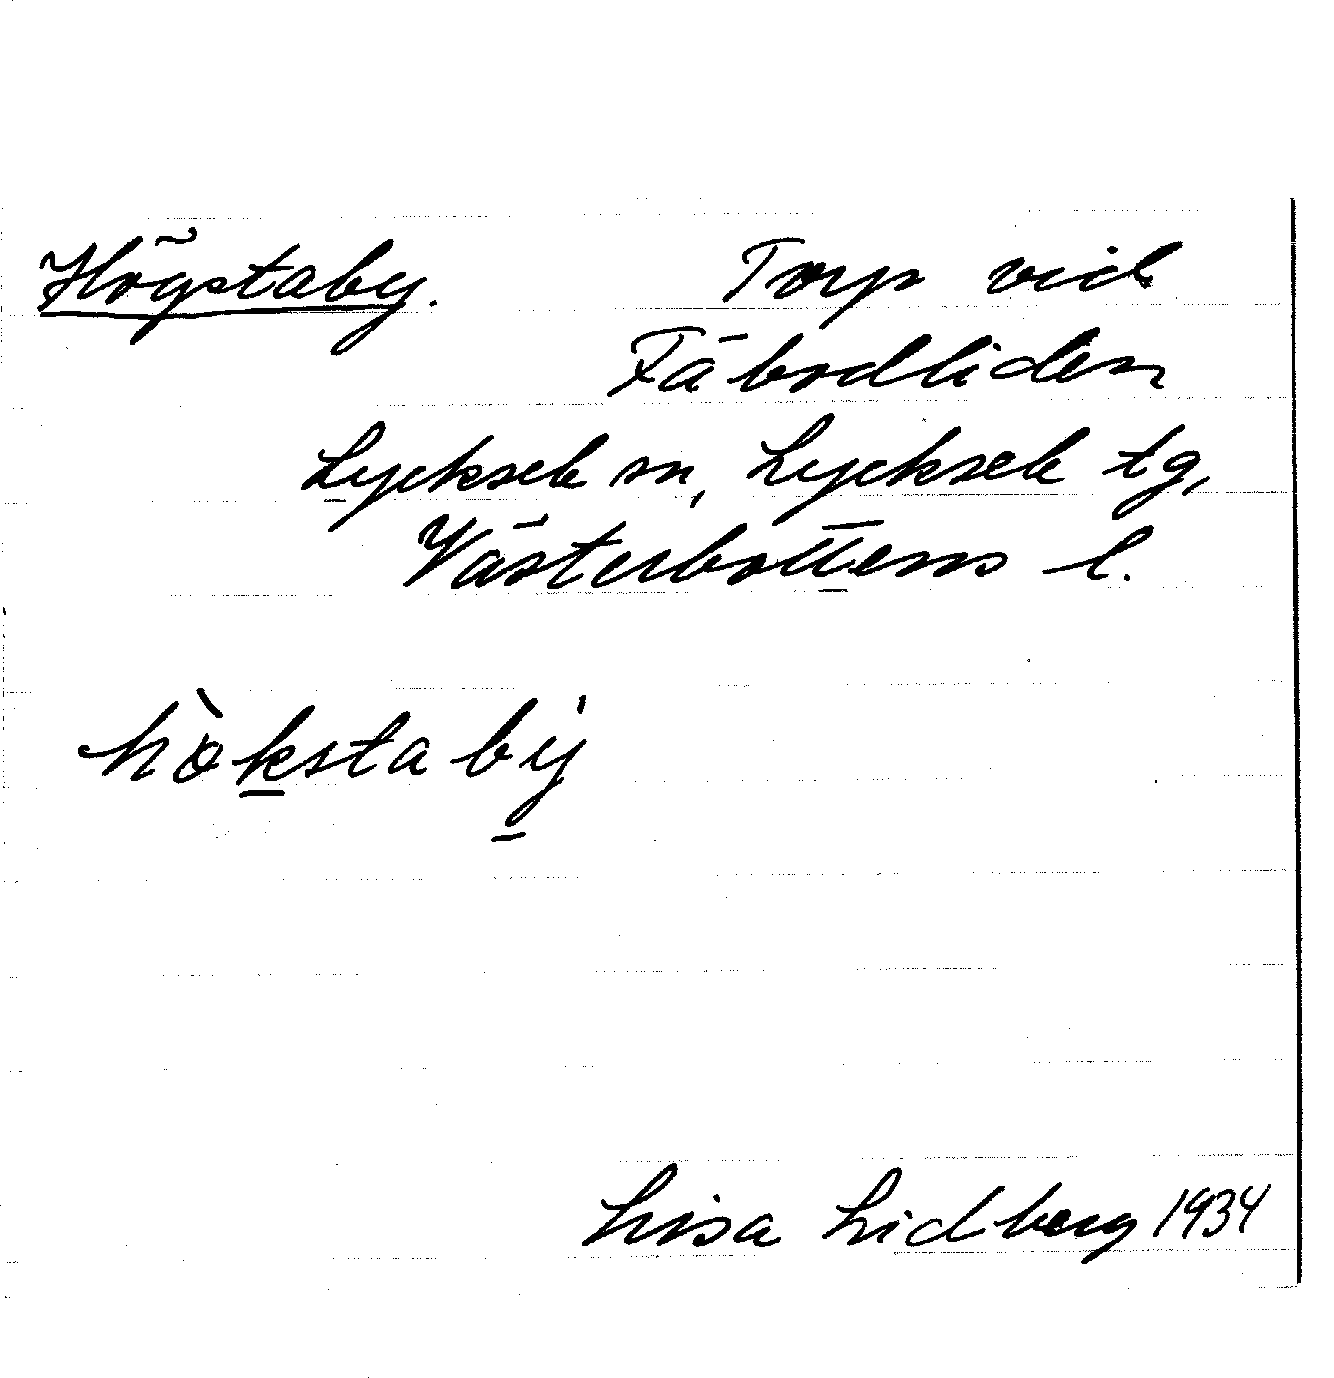 Högstaby. Torp vid
Fäbodliden
Lycksele sn, Lycksele tg,
Västerbottens l.
hòkstabý
Lisa Lidberg 1934